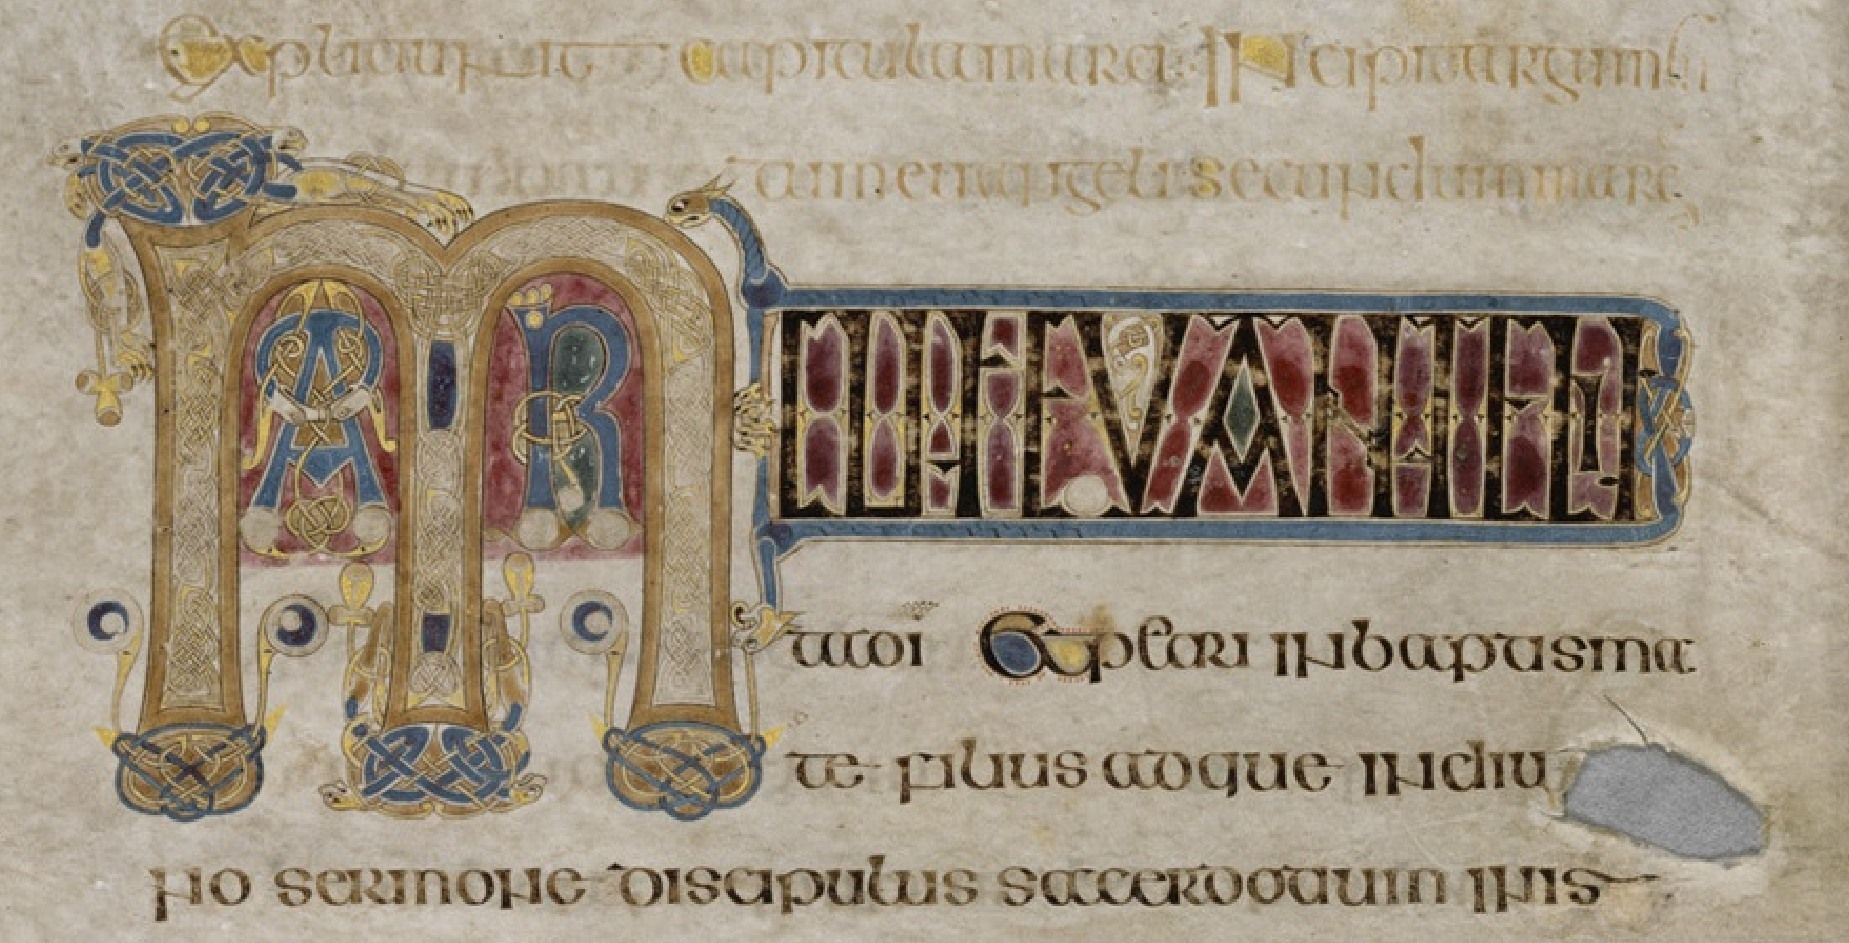 Expliciunt capitula marci INcipit argumen
tum in euangeli secundum marc
MARCUS EVANGELIS
ta di Et petri in baptisma
te filius adque in diui
no sermone discipulus sacerdotium in is